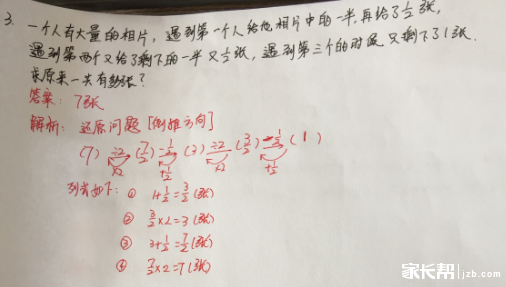 3. 一个人有大量的相片，遇到第一个人给他相片中的一半,再给了½张,
遇到第两个又给了剩下的一半又½张，遇到第三个的时候 只剩下了1张.
求原来一共有多少张？
答案：7张
解析：还原问题 [倒推方向]
(7) ÷2 (7/2) -1/2 (3) ÷2 (3/2) -1/2 (1)
×2 +1/2 ×2 +1/2
列式如下：① 1+1/2=3/2 (张)
② 3/2×2=3 (张)
③ 3+1/2=7/2 (张)
④ 7/2×2=7 (张)
家长帮 jzb.com